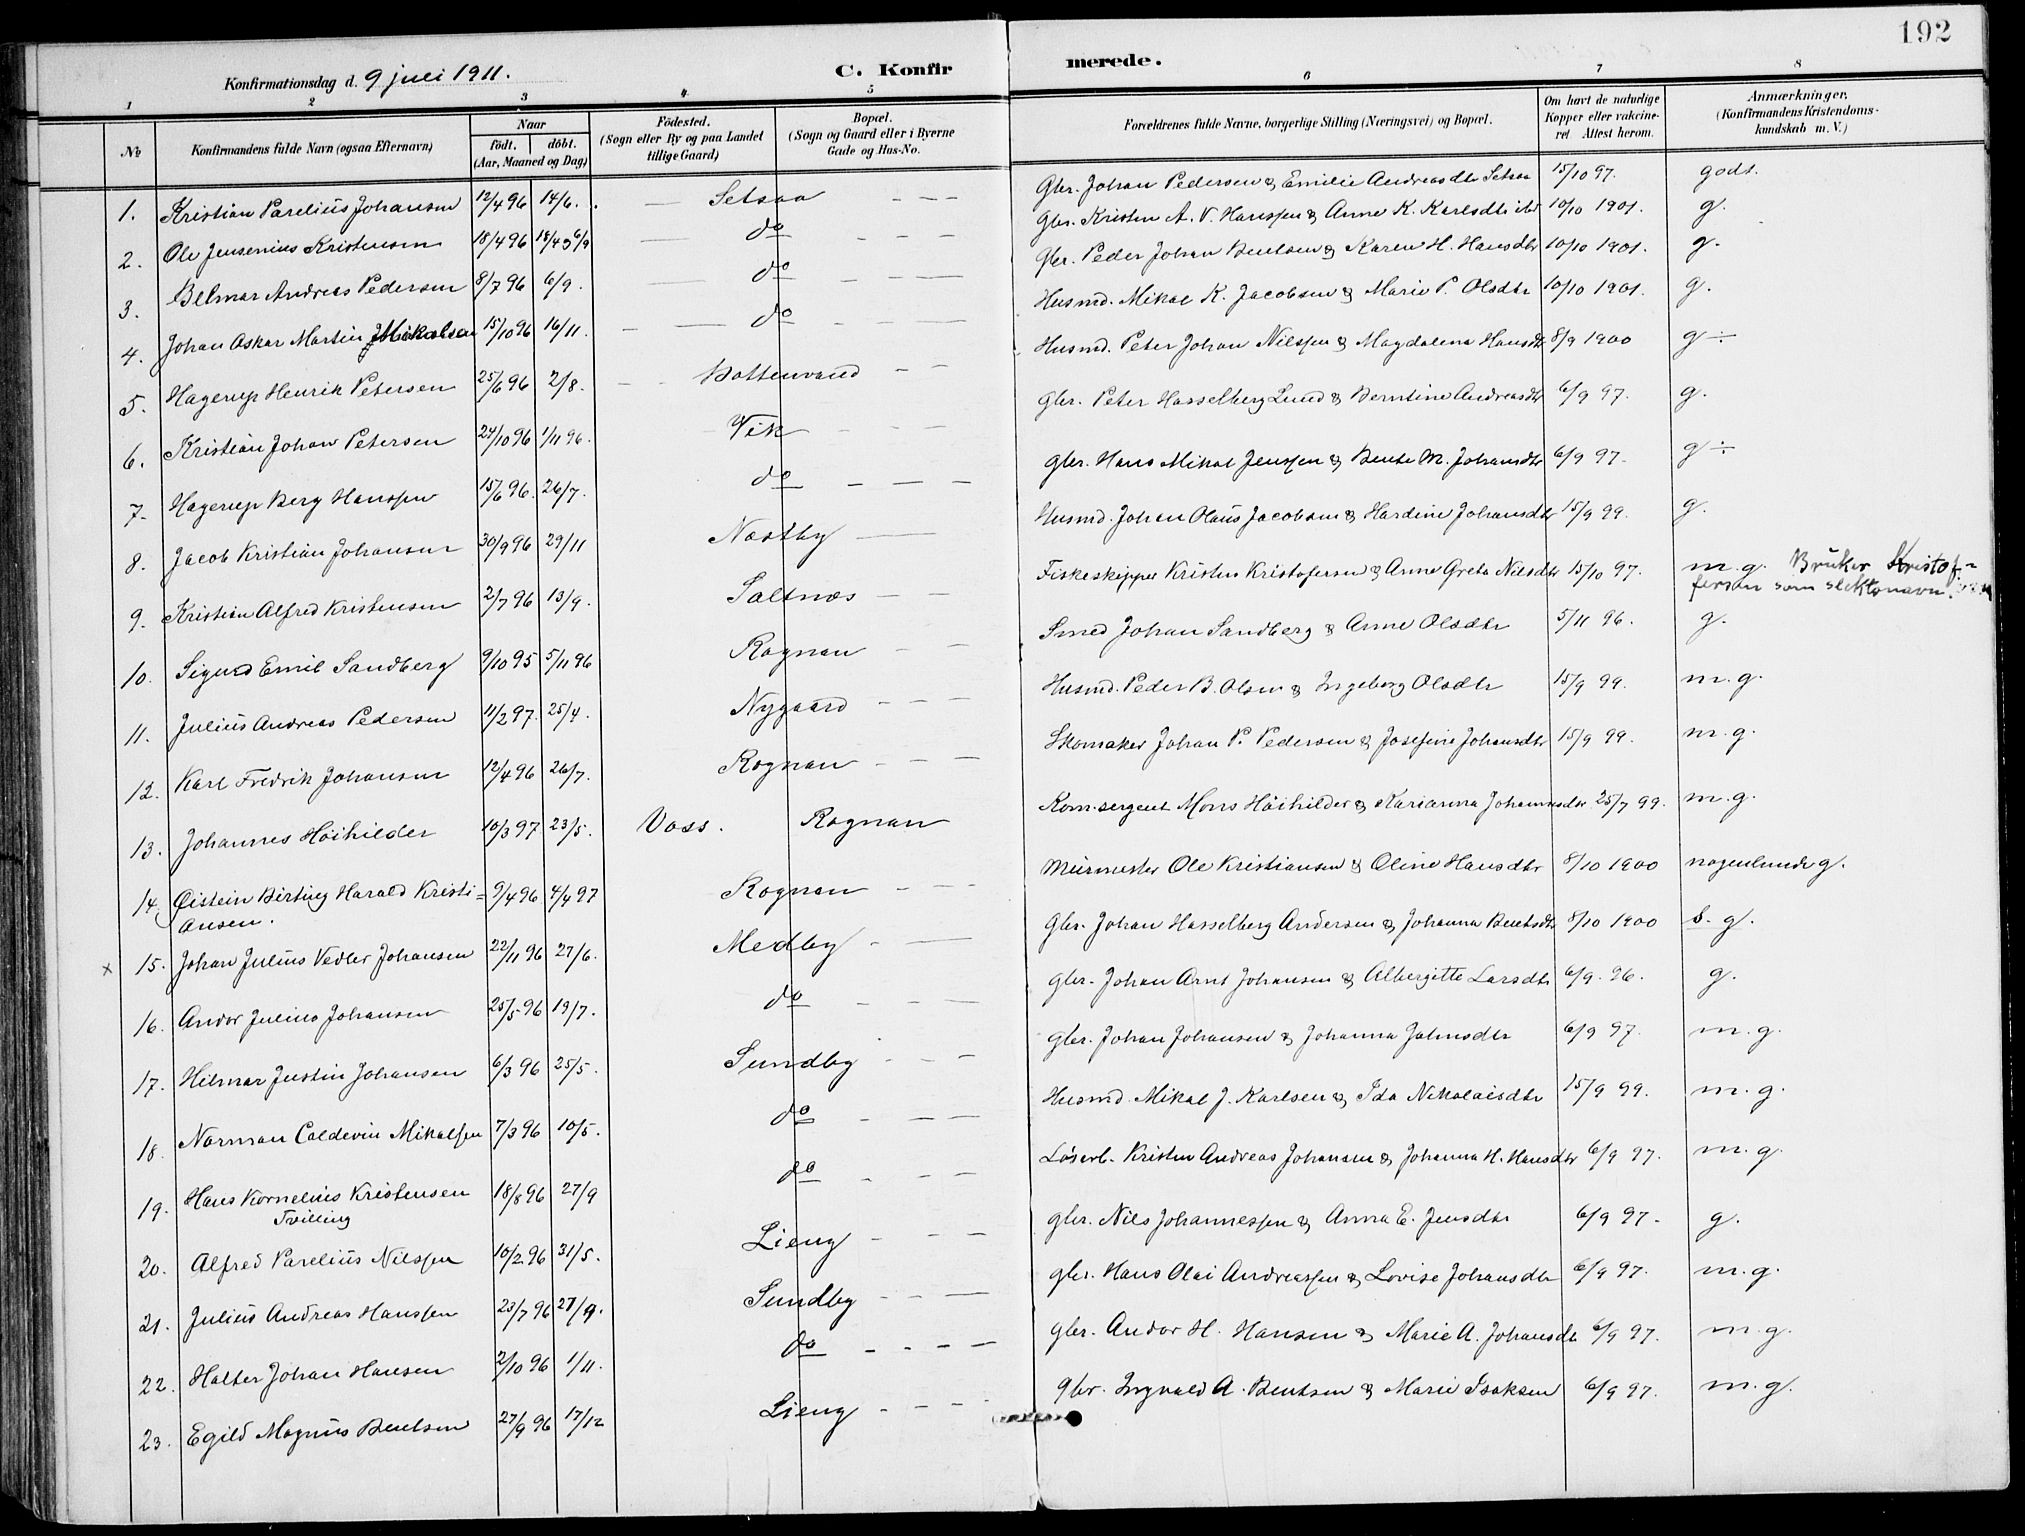 192
Konfirmationsdag d. 9 juli 1911.
C. Konfirmerede.
1 2 3 4 5 6 7 8
No
Konfirmandens fulde Navn (ogsaa Efternavn)
Naar
født. døbt.
(Aar, Maaned og Dag)
Fødested.
(Sogn eller By og paa Landet
tillige Gaard)
Bopæl.
(Sogn og Gaard eller i Byerne
Gade og Hus-No.
Forældrenes fulde Navne, borgerlige Stilling (Næringsvei) og Bopæl.
Om havt de naturlige
Kopper eller vakcine-
ret Attest herom.
Anmærkninger.
(Konfirmandens Kristendoms-
kundskab m. V.)
1. Kristian Parelius Johansen 12/4 96 14/6. — Setsaa — — — Gbr. Johan Pedersen & Emilie Andreasdtr Setsaa 15/10 97. godt.
2. Ole Jensenius Kristensen 18/4 96 — do — — — Gbr. Kristen A. V. Hanssen & Anne K. Karlsdtr 10/10 1901. g.
3. Hilmar Andreas Pedersen 8/7 96 6/9. — do — — — Gbr. Peder Johan Bentsen & Karen H. Hansdtr 10/10 1901. g.
4. Johan Oskar Martin Mikalsen 15/10 96 16/11. — — do — — — Husmd. Mikal K. Jacobsen & Marie P. Olsdtr 10/10 1901. g.
5. Hagerup Henrik Petersen 25/6 96 2/8. — — Bottenvand — — Husmd. Peter Johan Nilssen & Magdalena Hansdtr 8/9 1900 g ÷
6. Kristian Johan Petersen 24/10 96 1/11 96. Vik — — — Gbr. Peter Hasselberg Lund & Berntine Andreasdtr 6/9 97. g.
7. Hagerup Berg Hanssen 15/6 96. 26/7. do — — — Gbr. Hans Mikal Jenssen & Bente M. Johansdtr 6/9 97. g ÷
8. Jacob Kristian Johansen 30/9 96 29/11 Næstby — Husmd. Johan Olaus Jacobsen & Hardine Johansdtr 15/9 99. g.
9. Kristian Alfred Kristensen 2/7 96 13/9. Saltnes — — Fiskeskipper Kristen Kristofersen & Anne Greta Nilsdtr 15/10 97. m.g. Bruker Kristof-
fersen som slektsnavn.
10. Sigurd Emil Sandberg 9/10 95 5/11 96 Rognan — — Smed Johan Sandberg & Anne Olsdtr 5/11 96. g.
11. Julius Andreas Pedersen 11/2 97. 25/4. Nygaard — — Husmd. Peder B. Olsen & Ingeborg Olsdtr 15/9 99. m.g.
12. Karl Fredrik Johansen 12/4 96 26/7. Rognan — — — Skomaker Johan P. Pedersen & Josefine Johansdtr 15/9 99. m.g.
13. Johannes Höihilder 10/3 97 23/5. Voss. Rognan Kom.sergent Mons Höihilder & Karianna Johannesdtr 25/7 99. m.g.
14. Øistein Birting Harald Kristi- 9/4 96 4/4 97 Rognan — — — Murmester Ole Kristiansen & Oline Hansdtr 8/10 1900 nogenlunde g.
ansen.
x 15. Johan Julius Vedler Johansen 22/11 96 27/6. Medby — — Gbr. Johan Hasselberg Andersen & Johanna Bentsdtr 8/10 1900 s. g.
16. Andor Julius Johansen 25/5 96 19/7. do — — — Gbr. Johan Arnt Johansen & Albergitte Larsdtr 6/9. 96. g.
17. Hilmar Justin Johansen 6/3 96 25/5. Sundby — — — Gbr. Johan Johansen & Johanna 6/9 97. m.g.
18. Norman Coldevin Mikalsen 7/3 96 10/5. do — — — Husmd. Mikal J. Karlsen & Ida Nikolaisdtr 15/9 99. m.g.
19. Hans Kornelius Kristensen 18/8 96 27/9 do — — — Løserb. Kristen Andreas Johansen & Johanna H. Hansdtr 6/9 97. m.g.
Tvilling
20. Alfred Parelius Nilssen 10/2 96 31/5. Lieng — — — Gbr. Nils Johannessen & Anna E. Jensdtr 6/9 97. g.
21. Julius Andreas Hanssen 23/7 96 27/9. Sundby — — — Gbr. Hans Olai Andreassen & Lovise Johansdtr 6/9 97. m.g.
22. Halter Johan Hansen 2/10 96 1/11. do — — — — Gbr. Andor H. Hansen & Marie A. Johansdtr 6/9 97. m.g.
23. Egild Magnus Bentsen 27/9 96 17/12 Lieng — — — Gbr. Ingvald A. Bentsen & Marie Isaksen 6/9 97. m.g.